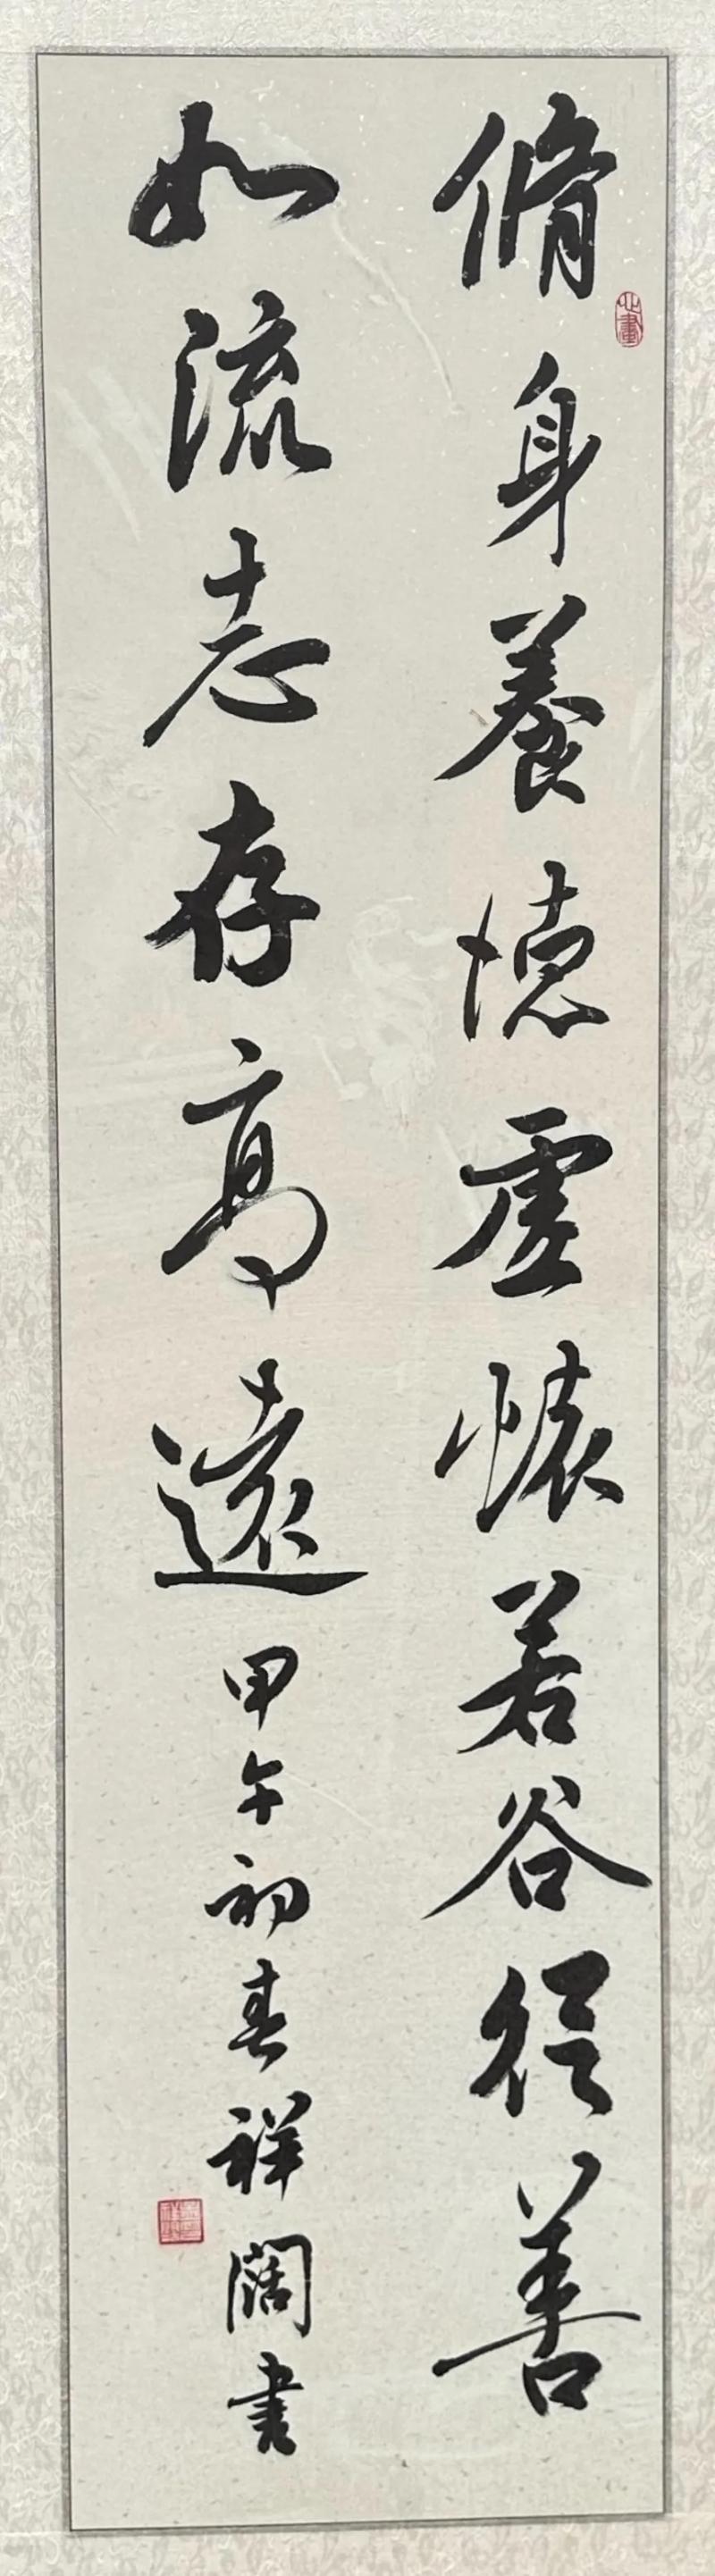 脩身養德虛懷若谷從善
如流志存高遠甲午初春祥闊書